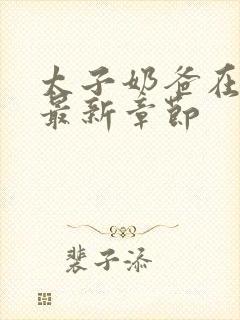 太子奶爸在
最新章节
裴子添